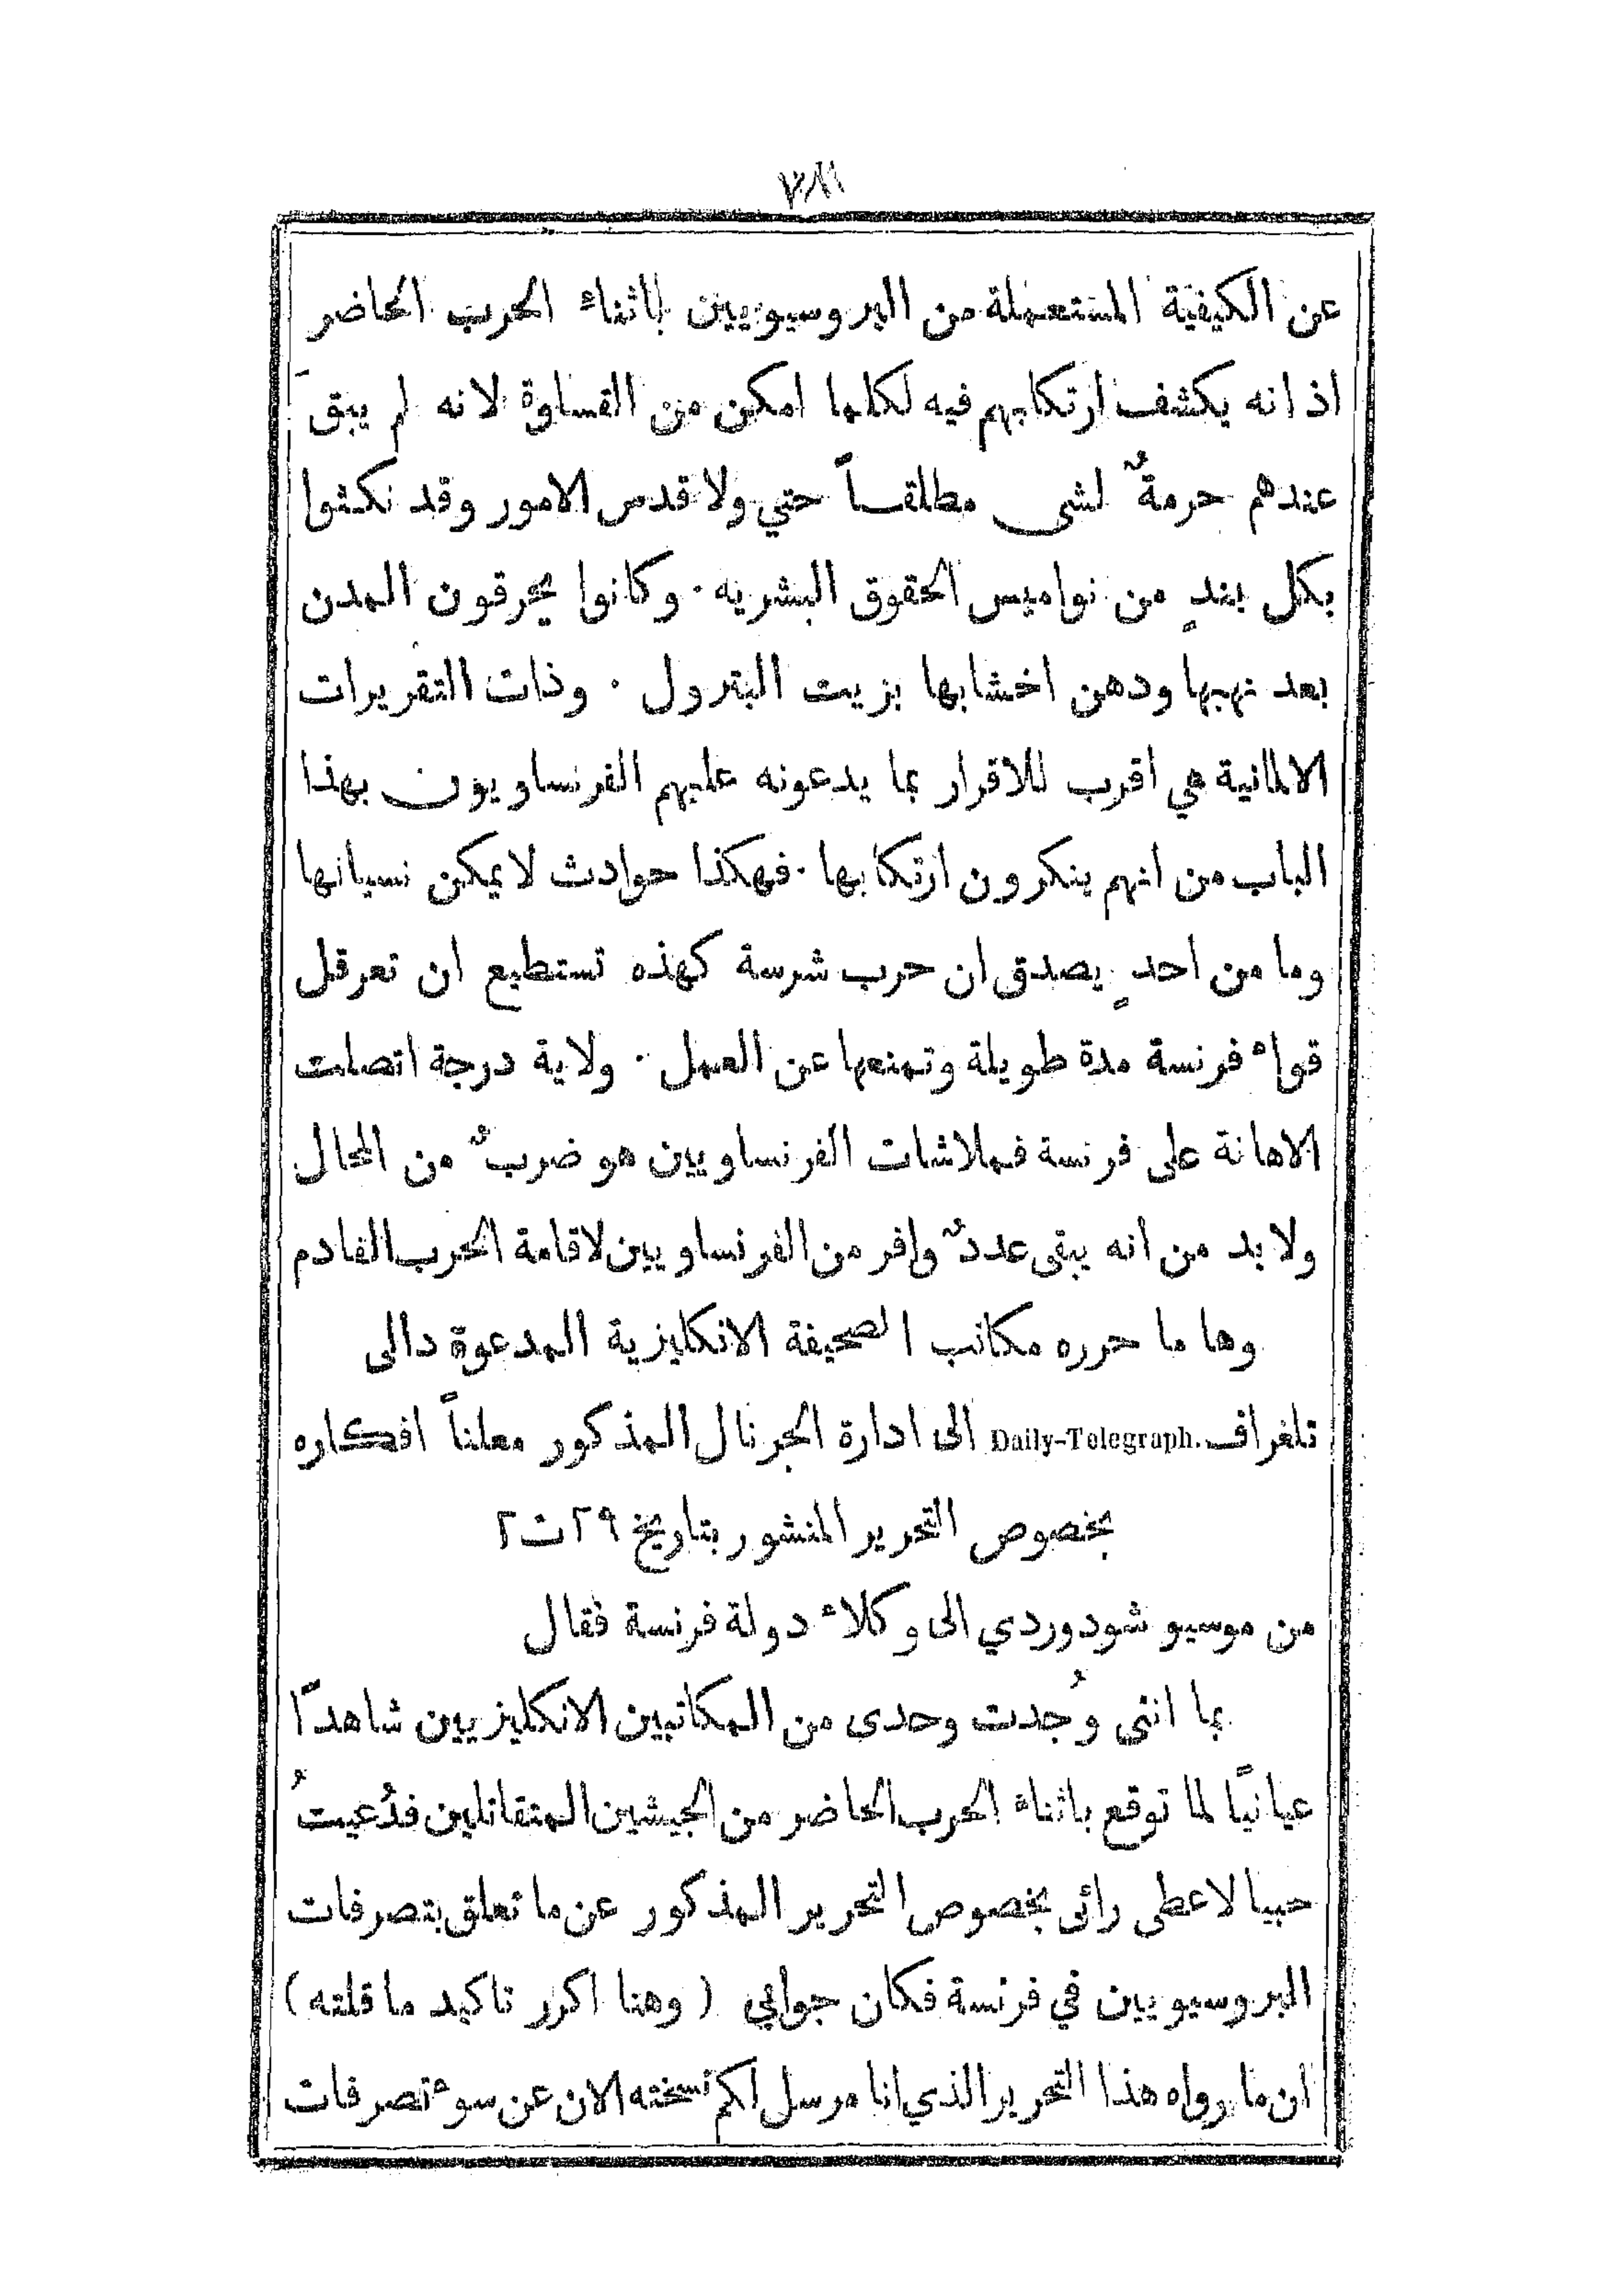 عن الكيفية المستعملة من البروسيويين باثناء الحرب الحاضر
اذ انه يكشف ارتكابهم فيه لكلما امكن من القساوة لانه لم يبقَ
عندهم حرمةٌ لشى مطلقاً حتي ولا قدس الامور وقد نكثوا
بكل بندٍ من نواميس الحقوق البشريه · وكانوا يحرقون المدن
بعد نهبها ودهن اخشابها بزيت البترول · وذات التقريرات
الالمانية هي اقرب للاقرار بما يدعونه عليهم الفرنساويون بهذا
الباب من انهم ينكرون ارتكابها · فهكذا حوادث لا يمكن نسيانها
وما من احدٍ يصدق ان حرب شرسة كهذه تستطيع ان تعرقل
قواء فرنسة مدة طويلة وتمنعها عن العمل · ولاية درجة اتصلت
الاهانة على فرنسة فملاشات الفرنساويين هو ضربٌ من المحال
ولا بد من انه يبقى عددٌ وافر من الفرنساويين لاقامة الحرب القادم
وها ما حرره مكاتب الصحيفة الانكليزية المدعوة دالى
تلغراف .Daily-Telegraph الى ادارة الجرنال المذكور معلناً افكاره
بخصوص التحرير المنشور بتاريخ ٢٩ ت ٢
من موسيو شودوردي الى وكلاء دولة فرنسة فقال
بما اننى وُجدت وحدى من المكاتبين الانكليزيين شاهدًا
عيانيًا لما توقع باثناء الحرب الحاضر من الجيشين المتقاتلين فدُعيتُ
حبيا لاعطى رائى بخصوص التحرير المذكور عن ما تعلق بتصرفات
البروسيويين في فرنسة فكان جوابي ( وهنا اكرر تاكيد ما قلته )
ان ما رواه هذا التحرير الذي انا مرسل لكم نسخته الان عن سوء تصرفات